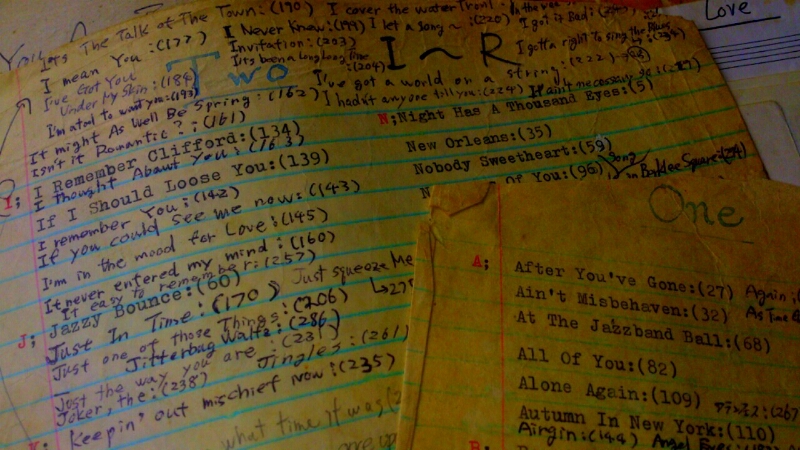 Love
It's The Talk of The Town:(170) I cover the waterfront
I mean You:(177) I Never Knew:(199) I let a song~:(220) I got it Bad:
I've Got You Under My Skin:(184) Invitation:(203) I gotta right to sing the Blues
Two
It's been a long long time:(204)
I ~ R
I'm afraid to want you:(193)
I've got a world on a string:(222)
It might As Well Be Spring:(162) I hadn't anyone till you:(224) It ain't necessary so:
Isn't it Romantic?:(161)
I; I Remember Clifford:(134)
I Thought About You:(163)
If I Should Loose You:(139)
I remember You:(142)
If you could see me now:(143)
I'm in the mood for Love:(145)
It never entered my mind:(160)
It easy to remember:(257)
J; Jazzy Bounce:(60)
Just squeeze Me
Just In Time:(170)
Just one of those Things:(206)
Jitterbug Waltz:(286)
Just the way you are:(231) Jingles:(261)
Joker, the:(238)
Keepin' out mischief now:(235)
what time it was
N;Night Has A Thousand Eyes:(5)
New Orleans:(35)
Nobody Sweetheart:(59)
of You:(95) Song
in Berklee Square:
One
A; After You've Gone:(27) Again;
Ain't Misbehaven:(32) As Time
At The Jazzband Ball:(68)
All Of You:(82)
Alone Again:(109)
Autumn In New York:(110)
Airgin:(144) Angel Eyes: